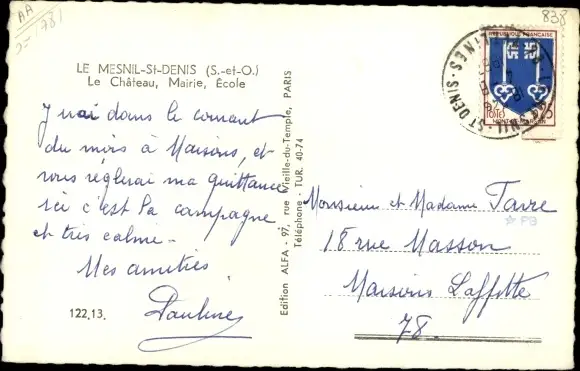 AA
838
LE MESNIL-St-DENIS (S.-et-O.)
Le Château, Mairie, École
J'irai dans le courant
du mois à Maisons, et
vous réglerai ma quittance
ici c'est la campagne
et très calme -
Mes amitiés
Pauline
122.13.
Edition ALFA - 97, rue Vieille-du-Temple, PARIS
Téléphone - TUR. 40-74
REPUBLIQUE FRANÇAISE
MONT-DE-MARSAN
ST DENIS
Monsieur et Madame Favre
PB
18 rue Masson
Maisons Laffitte
78